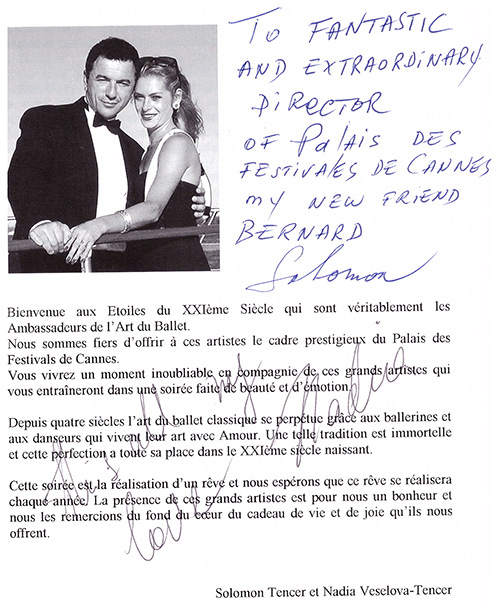 To FANTASTIC
AND EXTRAORDINARY
DIRECTOR
OF PALAIS DES
FESTIVALES DE CANNES
MY NEW FRIEND
BERNARD
Solomon
Bienvenue aux Etoiles du XXIème Siècle qui sont véritablement les
Ambassadeurs de l'Art du Ballet.
Nous sommes fiers d'offrir à ces artistes le cadre prestigieux du Palais des
Festivals de Cannes.
Vous vivrez un moment inoubliable en compagnie de ces grands artistes qui
vous entraîneront dans une soirée faite de beauté et d'émotion.
Depuis quatre siècles l'art du ballet classique se perpétue grâce aux ballerines et
aux danseurs qui vivent leur art avec Amour. Une telle tradition est immortelle
et cette perfection a toute sa place dans le XXIème siècle naissant.
Cette soirée est la réalisation d'un rêve et nous espérons que ce rêve se réalisera
chaque année. La présence de ces grands artistes est pour nous un bonheur et
nous les remercions du fond du cœur du cadeau de vie et de joie qu'ils nous
offrent.
all my
love
Nadia
Solomon Tencer et Nadia Veselova-Tencer